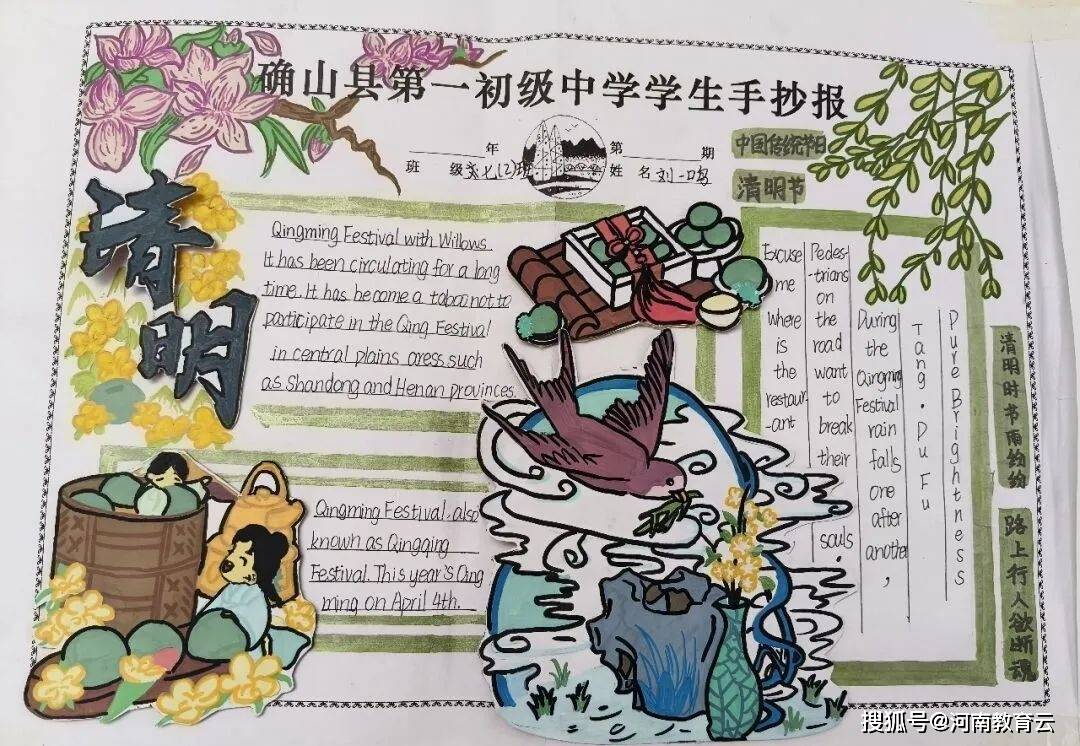 确山县第一初级中学学生手抄报
年 第 期
班 级 姓 名 刘一鸣
中国传统节日
清明节
清明
Qingming Festival with Willows
It has been circulating for a long
time. It has become a taboo not to
participate in the Qing Festival
in central plains aress such
as Shandong and Henan provinces.
Qingming Festival. also
known as Qingqing
Festival. This year's Qing
ming on April 4th.
Pure Brightness
Tang · Du Fu
During the Qingming Festival rain falls one after another,
Pedes-trians on the road want to break their souls.
Excuse me where is the restaur-ant
清明时节雨纷纷
路上行人欲断魂
搜狐号@河南教育云